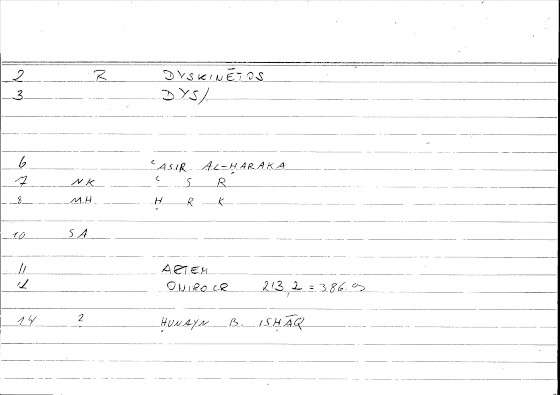 2 R DYSKINĒTOS
3 DYS/
6 ʿASIR AL-ḤARAKA
7 NK ʿ S R
8 MH Ḥ R K
10 SA
11 ARTEM
12 ONIROCR 213,2 = 386.9
14 2 ḤUNAYN B. ISḤĀQ